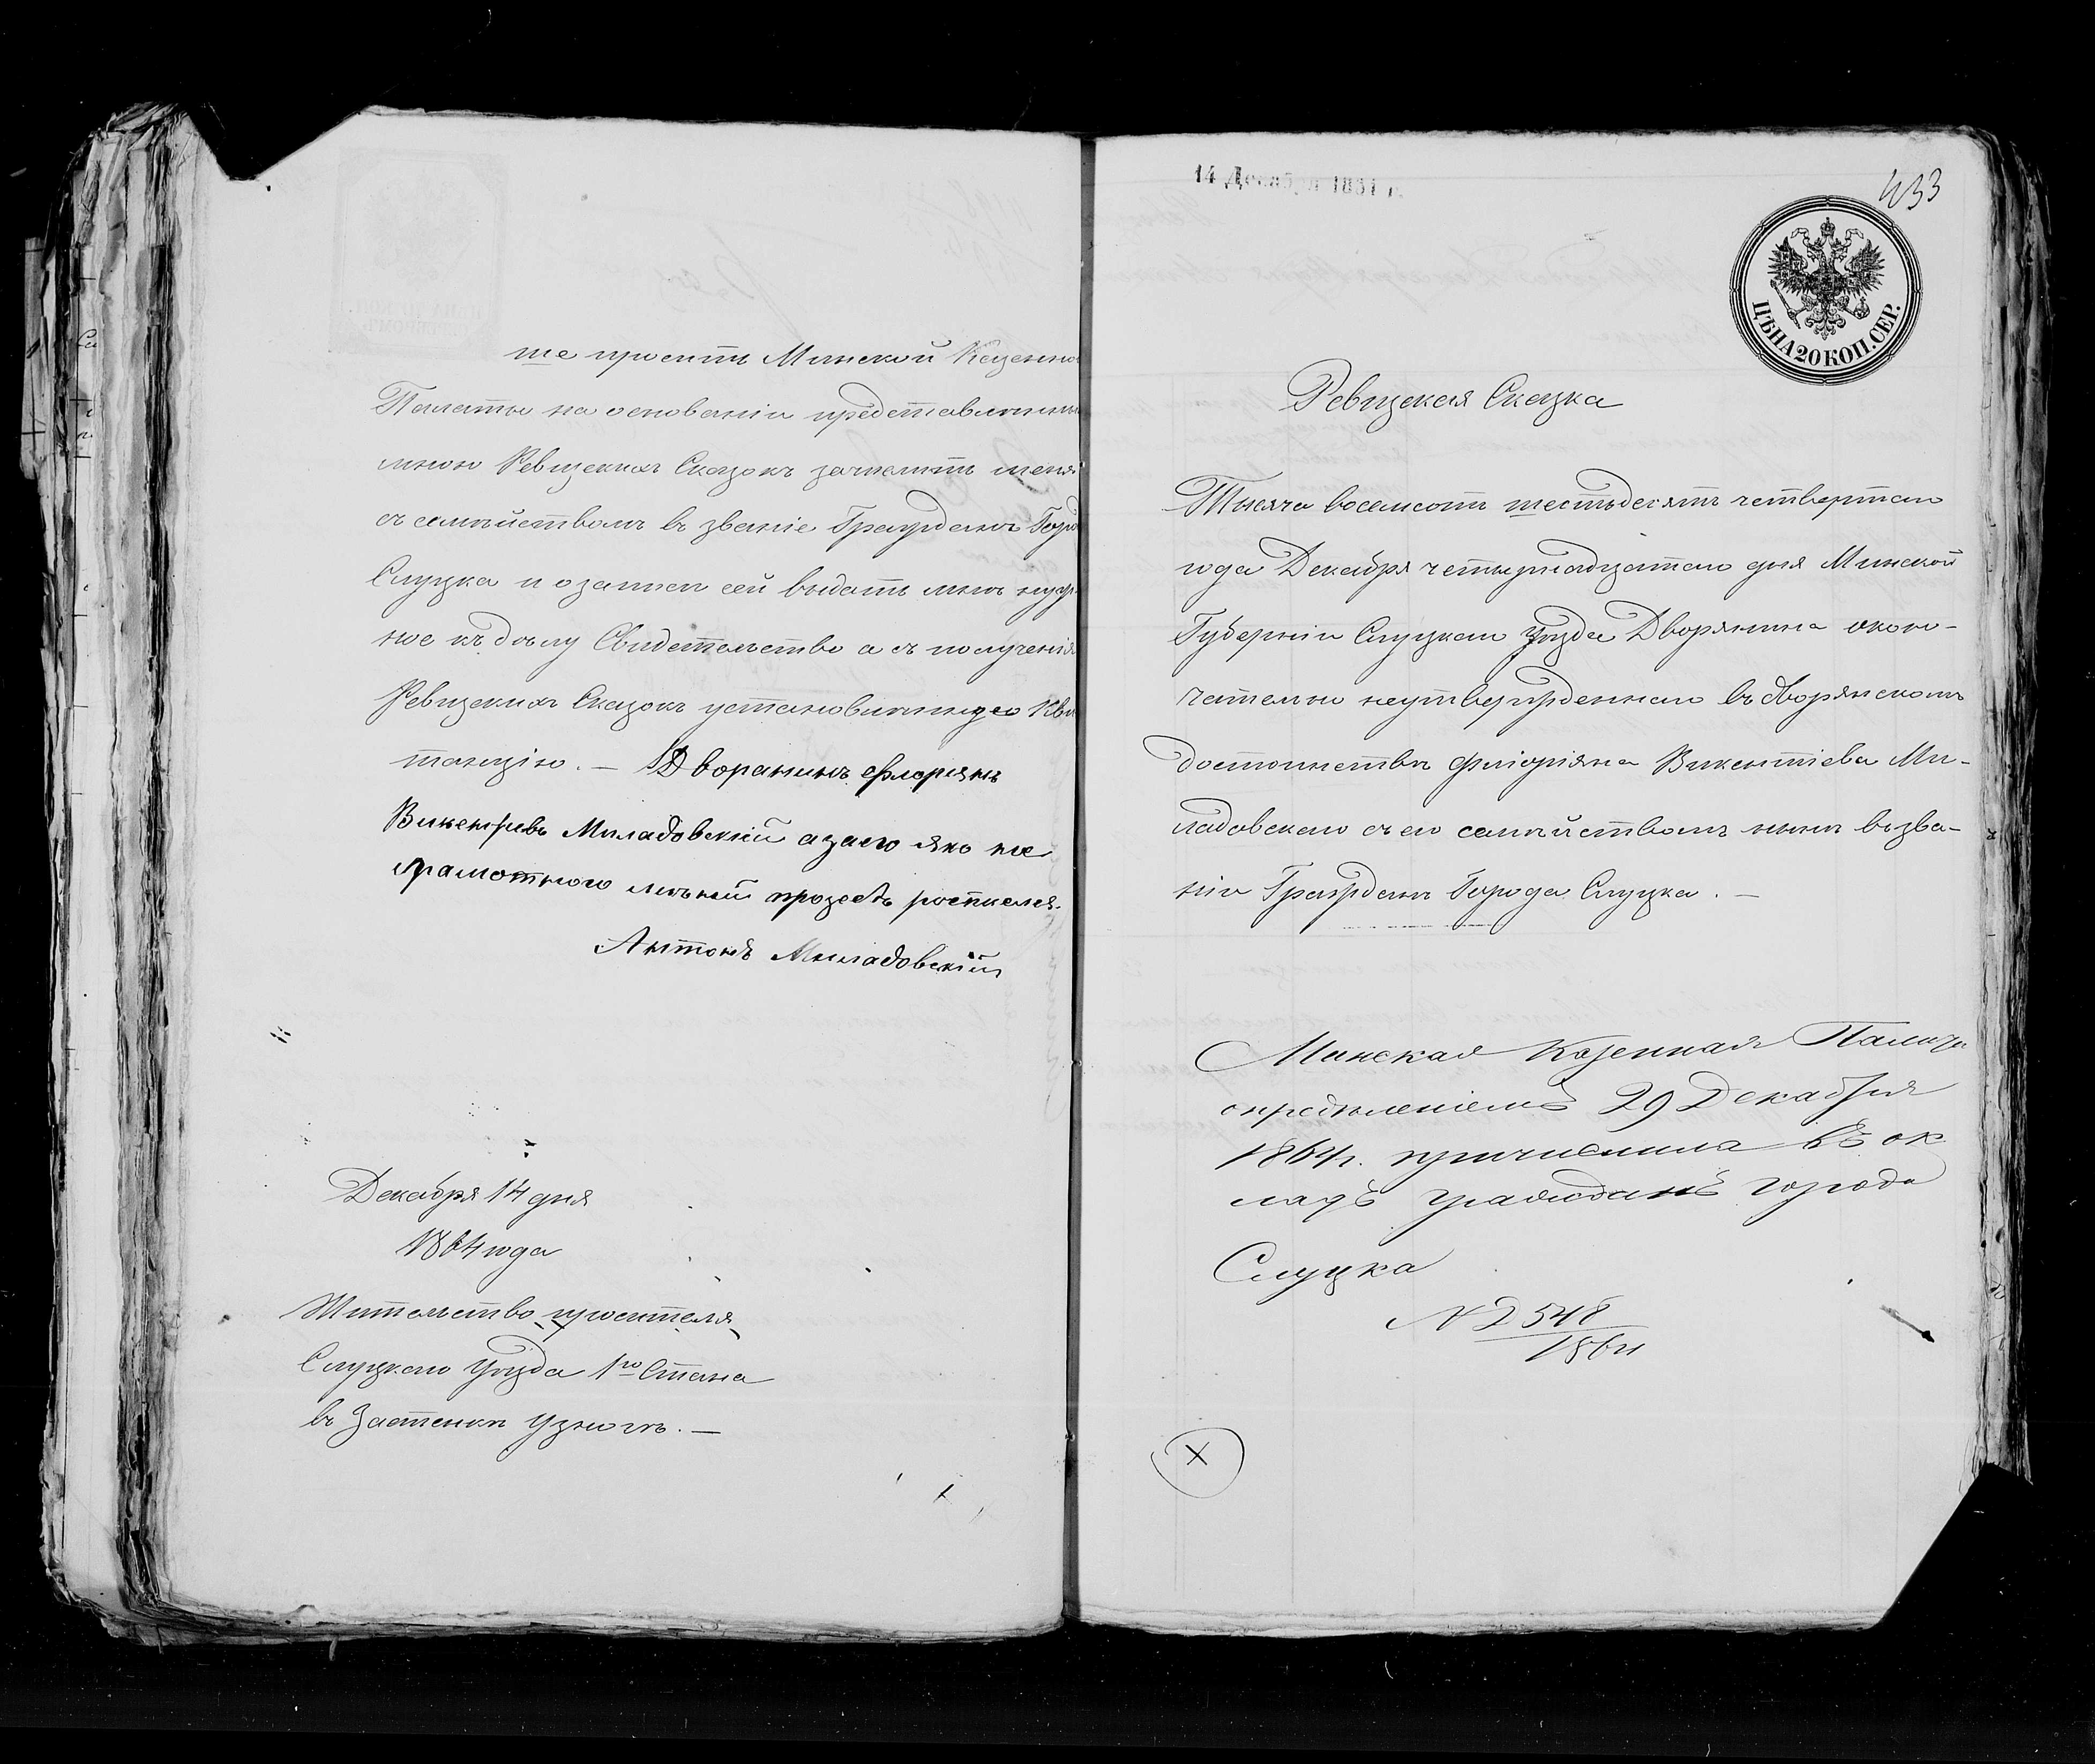 ше просить Минской Казенно
Палаты на основаніи представленны
мною Ревизскихъ Сказокъ зачислить меня
съ семѣйствомъ въ званіе Гражданъ Горо
Слуцка и о записи сей выдать мнѣ нуж
ное къ дѣлу Свидетельство а съ полученія
Ревизскихъ Сказокъ установленную Кви
танцію. — Дворянинъ Флорянъ
Викентіевъ Миладовскій а за его яко не
грамотного личной прозбѣ росписался
Антонъ Миладовскій
Декабря 14 дня
1864 года
Жительство просителя
Слуцкаго Уѣзда 1го Стана
въ Застенкѣ Узногъ. —
14 Декабря 1864 г.
433
ЦѢНА 20 КОП. СЕР.
Ревизская Сказка
Тысяча восемсотъ шестьдесятъ четвертаго
года Декабря четырнадцатаго дня Минской
Губерніи Слуцкаго Уѣзда Дворянина окон-
чательно неутвержденнаго въ дворянскомъ
достоинствѣ Флоріяна Викентіева Ми-
ладовскаго съ его семѣйствомъ нынѣ въ зва-
ніи Гражданъ Города Слуцка. —
Минская Казенная Палата
опредѣленіемъ 29 Декабря
1864 г. причислила въ ок
ладъ гражданъ города
Слуцка
№ 2548
1864